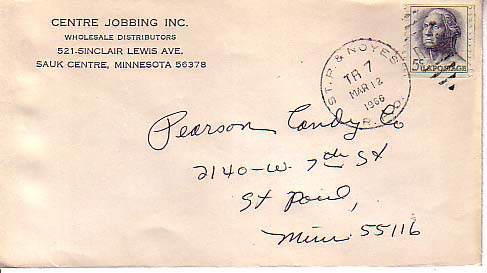 CENTRE JOBBING INC.
WHOLESALE DISTRIBUTORS
521-SINCLAIR LEWIS AVE.
SAUK CENTRE, MINNESOTA 56378
ST. P. & NOYES
TR 7
MAR 12
1966
R.P.O.
5¢ U.S. POSTAGE
Pearson Candy Co
2140-W. 7th St
St Paul,
Minn 55116